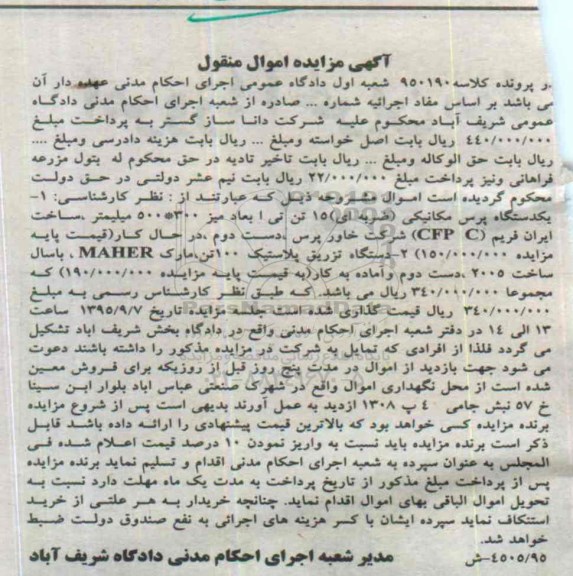 آگهی مزایده اموال منقول
ر پرونده کلاسه ۹۵۰۱۹۰ شعبه اول دادگاه عمومی اجرای احکام مدنی عهده دار آن
می باشد بر اساس مفاد اجرائیه شماره ... صادره از شعبه اجرای احکام مدنی دادگاه
عمومی شریف آباد محکوم علیه شرکت دانا ساز گستر به پرداخت مبلغ
۴۴۰/۰۰۰/۰۰۰ ریال بابت اصل خواسته ومبلغ ... ریال بابت هزینه دادرسی ومبلغ ....
ریال بابت حق الوکاله ومبلغ ... ریال بابت تاخیر تادیه در حق محکوم له بتول مزرعه
فراهانی ونیز پرداخت مبلغ ۲۲/۰۰۰/۰۰۰ ریال بابت نیم عشر دولتی در حق دولت
محکوم گردیده است اموال مشروحه ذیل که عبارتند از : نظر کارشناسی: ۱-
یکدستگاه پرس مکانیکی (ضربه ای)۱۵ تن تی ا بعاد میز ۳۰۰*۵۰۰ میلیمتر ،ساخت
ایران فریم (CFP C) شرکت خاور پرس ،دست دوم ،در حال کار(قیمت پایه
مزایده ۱۵۰/۰۰۰/۰۰۰) ۲-دستگاه تزریق پلاستیک ۱۰۰تن،مارک MAHER ، باسال
ساخت ۲۰۰۵ ،دست دوم وآماده به کار(به قیمت پایه مزایده ۱۹۰/۰۰۰/۰۰۰) که
مجموعا ۳۴۰/۰۰۰/۰۰۰ ریال می باشد. که طبق نظر کارشناس رسمی به مبلغ
۳۴۰/۰۰۰/۰۰۰ ریال قیمت گذاری شده است جلسه مزایده تاریخ ۱۳۹۵/۹/۷ ساعت
۱۳ الی ۱۴ در دفتر شعبه اجرای احکام مدنی واقع در دادگاه بخش شریف اباد تشکیل
می گردد فلذا از افرادی که تمایل به شرکت در مزایده مذکور را داشته باشند دعوت
می شود جهت بازدید از اموال در مدت پنج روز قبل از روزیکه برای فروش معین
شده است از محل نگهداری اموال واقع در شهرک صنعتی عباس اباد بلوار ابن سینا
خ ۵۷ نبش جامی ۴۰ پ ۱۳۰۸ ازدید به عمل آورند بدیهی است پس از شروع مزایده
برنده مزایده کسی خواهد بود که بالاترین قیمت پیشنهادی را ارائه داده باشد قابل
ذکر است برنده مزایده باید نسبت به واریز نمودن ۱۰ درصد قیمت اعلام شده فی
المجلس به عنوان سپرده به شعبه اجرای احکام مدنی اقدام و تسلیم نماید برنده مزایده
پس از پرداخت مبلغ مذکور از تاریخ پرداخت به مدت یک ماه مهلت دارد نسبت به
تحویل اموال الباقی بهای اموال اقدام نماید. چنانچه خریدار به هر علتی از خرید
استنکاف نماید سپرده ایشان با کسر هزینه های اجرائی به نفع صندوق دولت ضبط
خواهد شد.
۴۵۰۵/۹۵-ش مدیر شعبه اجرای احکام مدنی دادگاه شریف آباد